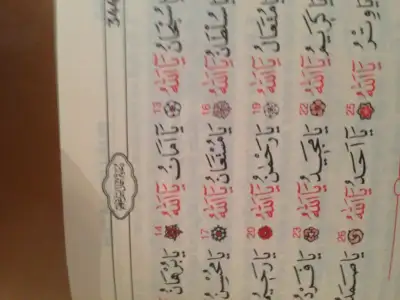 344
سُبْحَانُ يَا اَللّٰهُ 13 يَا اَمَانُ يَا اَللّٰهُ 14 يَا بُرْهَانُ
يَا سُلْطَانُ يَا اَللّٰهُ 16 يَا مُسْتَعَانُ يَا اَللّٰهُ 17 يَا مُحْسِنُ
مُتَعَالُ يَا اَللّٰهُ 19 يَا رَحْمٰنُ يَا اَللّٰهُ 20 يَا رَحِيمُ
يَا كَرِيمُ يَا اَللّٰهُ 22 يَا مَجِيدُ يَا اَللّٰهُ 23 يَا فَرْدُ
يَا وِتْرُ يَا اَللّٰهُ 25 يَا اَحَدُ يَا اَللّٰهُ 26 يَا صَمَدُ